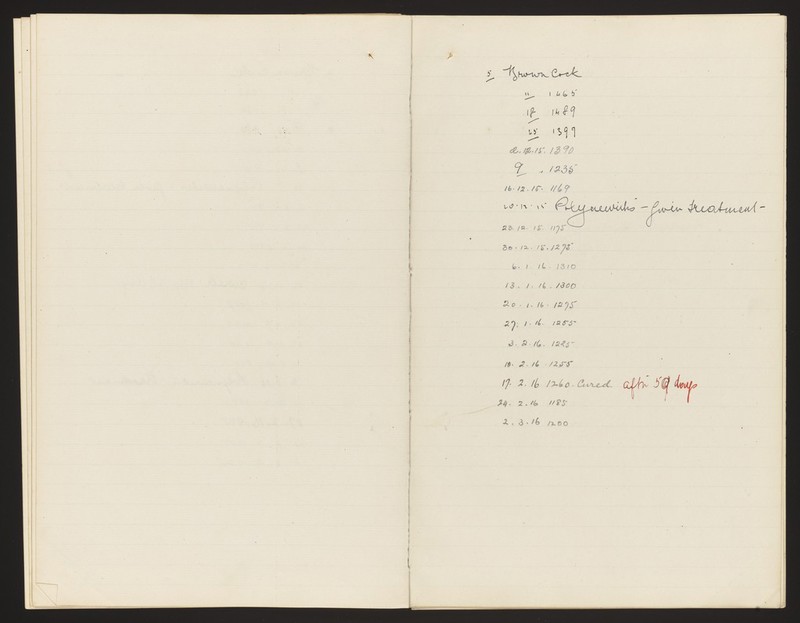 5 Brown Cock
11 1465
18 1489
25 1397
2.12.15. 1390
9 " 1235
16.12.15. 1169
20.12.15 Polyneuritis - Given Treatment -
23.12.15 1175
30.12.15. 1275
6.1.16. 1310
13.1.16. 1300
20.1.16. 1275
27.1.16. 1255
3.2.16. 1285
10.2.16 1255
17.2.16 1260. Cured after 59 days
24.2.16 1185
2.3.16 1200